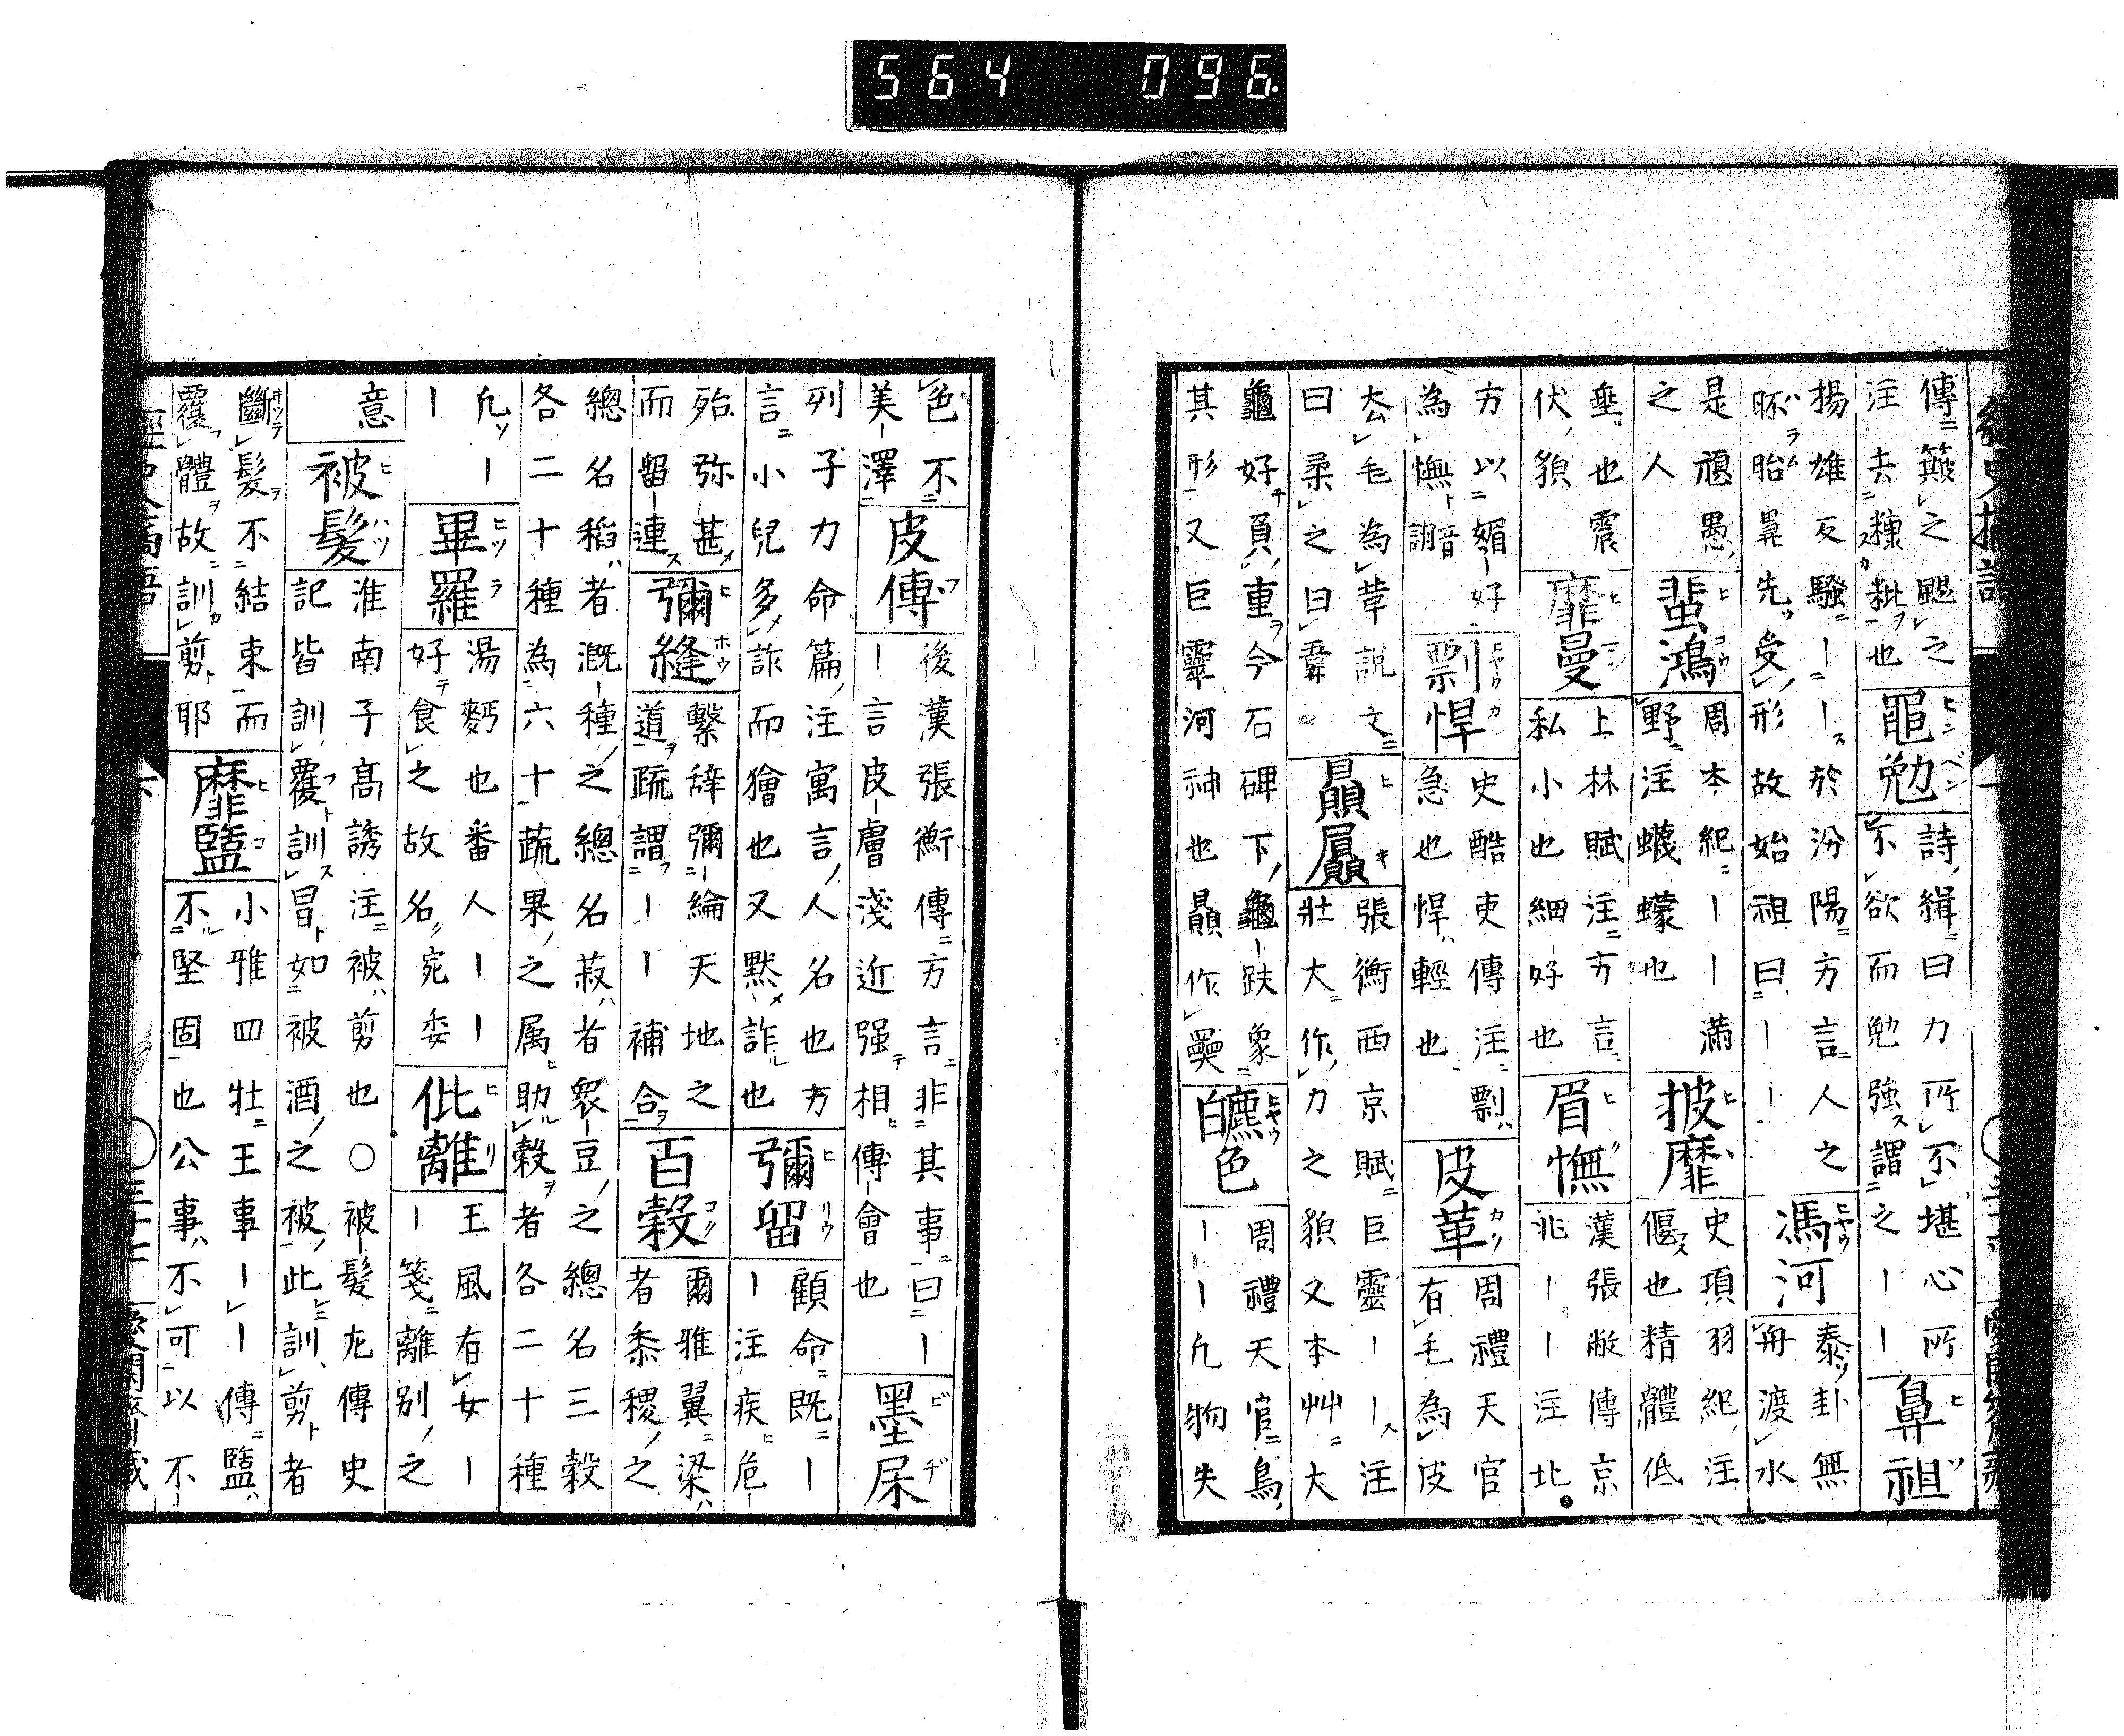 564 096.
傳簸之颺之
注去糠粃也
黽勉
詩緝曰力所不堪心所
不欲而勉強謂之ーー
鼻祖
揚雄反騷ーー於汾陽方言人之
胚胎鼻先受形故始祖曰ーー
馮河
泰卦無
舟渡水
是慁愚
之人
蜚鴻
周本紀ーー滿
野注蠛蠓也
披靡
史項羽紀注
偃也精體低
垂也震
伏貌
靡曼
上林賦注方言
私小也細好也
眉憮
漢張敞傳京
兆ーー注北
方以媚好
為憮謝音
剽悍
史酷吏傳注剽
急也悍輕也
皮革
周禮天官
有毛為皮
去毛為革說文
曰柔之曰韋
贔屭
張衡西京賦巨靈ーー注
壯大作力之貌又本艸大
龜好負重今石碑下龜趺象
其形又巨靈河神也贔作奰
皫色
周禮天官鳥
ーー凡物失
色不
美澤
皮傳
後漢張衡傳方言非其事曰ー
ー言皮膚淺近强相傳會也
墨尿
列子力命篇注寓言人名也方
言小兒多詐而獪也又黙詐也
彌留
顧命既ー
ー注疾危
殆弥甚
而留連
彌縫
繫辞彌綸天地之
道疏謂ーー補合
百穀
爾雅翼粱
者黍稷之
總名稻者溉種之總名菽者衆豆之總名三穀
各二十種為六十蔬果之属助穀者各二十種
凡ー
ー
畢羅
湯麪也番人ーー
好食之故名宛委
仳離
王風有女ー
ー箋離別之
意
被髮
淮南子高誘注被剪也○被髮左傳史
記皆訓覆訓冒如被酒之被此訓剪者
斷髮不結束而
覆體故訓剪耶
靡盬
小雅四牡王事ーー傳盬
不堅固也公事不可以不